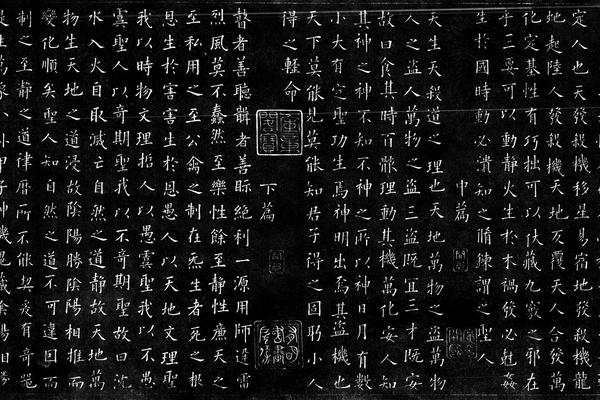 定人也天發殺機移星易宿地發殺機龍
虵起陸人發殺機天地反覆天人合發萬
化定基性有巧拙可以伏藏九竅之邪在
乎三要可以動靜火生於木禍發必尅姦
生於國時動必潰知之脩鍊謂之聖人
中篇
天生天殺道之理也天地萬物之盜萬物
人之盜人萬物之盜三盜既宜三才既安
故曰食其時百骸理動其機萬化安人知
其神之神不知不神之所以神日月有數
小大有定聖功生焉神明出焉其盜機也
天下莫能見莫能知君子得之固躬小人
得之輕命
下篇
瞽者善聽聾者善眎絕利一源用師雷
烈風莫不蠢然至樂性餘至靜性廉天之
至私用之至公禽之制在炁生者死之根
恩生於害害生於恩愚人以天地文理聖
我以時物文理哲人以愚虞聖我以不愚
虞聖人以奇期聖我以不奇期聖故曰沈
水入火自取滅亡自然之道靜故天地萬
物生天地之道浸故陰陽勝陰陽相推而
變化順矣聖人知自然之道不可違因而
制之至靜之道律曆所不能契爰有奇器
生萬象八卦甲子神機鬼藏陰陽相勝